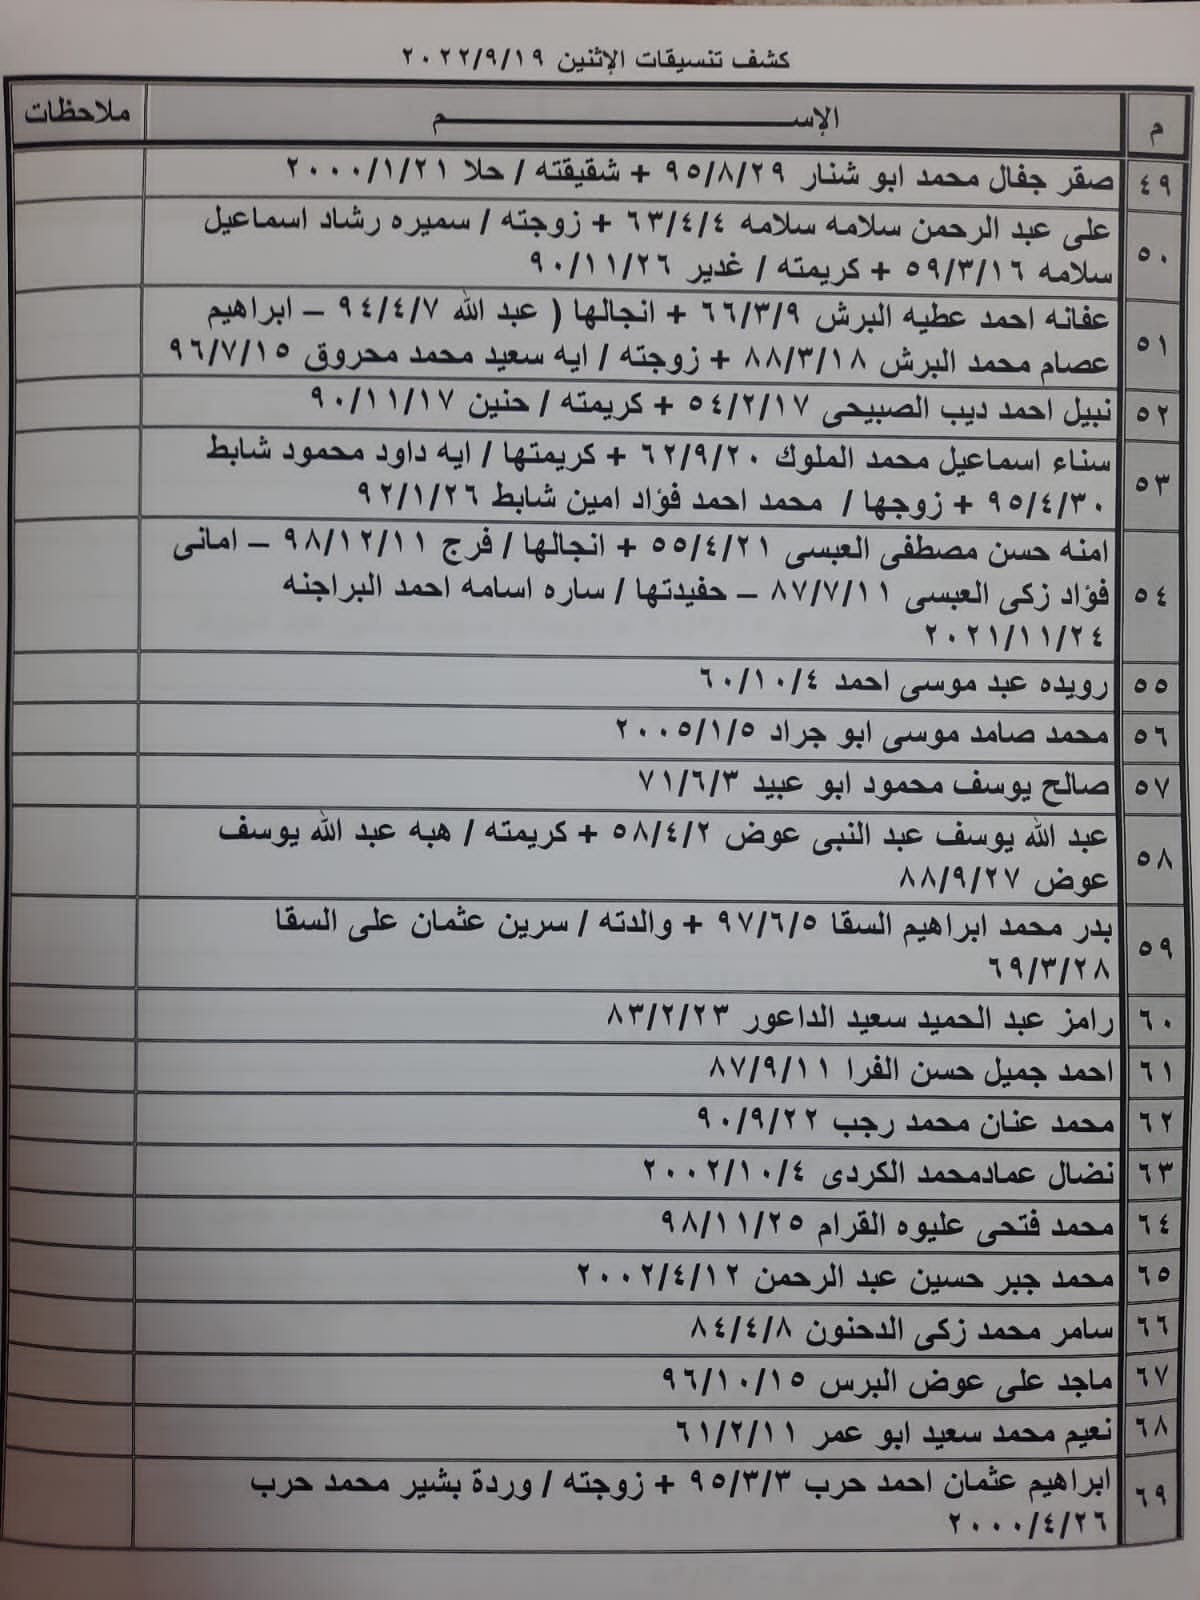 كشف تنسيقات الإثنين ٢٠٢٢/٩/١٩
م الإســـــــــم ملاحظات
٤٩ صقر جفال محمد ابو شنار ٩٥/٨/٢٩ + شقيقته / حلا ٢٠٠٠/١/٢١
٥٠ على عبد الرحمن سلامه سلامه ٦٣/٤/٤ + زوجته / سميره رشاد اسماعيل
سلامه ٥٩/٣/١٦ + كريمته / غدير ٩٠/١١/٢٦
٥١ عفانه احمد عطيه البرش ٦٦/٣/٩ + انجالها ( عبد الله ٩٤/٤/٧ – ابراهيم
عصام محمد البرش ٨٨/٣/١٨ + زوجته / ايه سعيد محمد محروق ٩٦/٧/١٥
٥٢ نبيل احمد ديب الصبيحى ٥٤/٢/١٧ + كريمته / حنين ٩٠/١١/١٧
٥٣ سناء اسماعيل محمد الملوك ٦٢/٩/٢٠ + كريمتها / ايه داود محمود شابط
٩٥/٤/٣٠ + زوجها / محمد احمد فؤاد امين شابط ٩٢/١/٢٦
٥٤ امنه حسن مصطفى العبسى ٥٥/٤/٢١ + انجالها / فرج ٩٨/١٢/١١ – امانى
فؤاد زكى العبسى ٨٧/٧/١١ – حفيدتها / ساره اسامه احمد البراجنه
٢٠٢١/١١/٢٤
٥٥ رويده عبد موسى احمد ٦٠/١٠/٤
٥٦ محمد صامد موسى ابو جراد ٢٠٠٥/١/٥
٥٧ صالح يوسف محمود ابو عبيد ٧١/٦/٣
٥٨ عبد الله يوسف عبد النبى عوض ٥٨/٤/٢ + كريمته / هبه عبد الله يوسف
عوض ٨٨/٩/٢٧
٥٩ بدر محمد ابراهيم السقا ٩٧/٦/٥ + والدته / سرين عثمان على السقا
٦٩/٣/٢٨
٦٠ رامز عبد الحميد سعيد الداعور ٨٣/٢/٢٣
٦١ احمد جميل حسن الفرا ٨٧/٩/١١
٦٢ محمد عنان محمد رجب ٩٠/٩/٢٢
٦٣ نضال عمادمحمد الكردى ٢٠٠٢/١٠/٤
٦٤ محمد فتحى عليوه القرام ٩٨/١١/٢٥
٦٥ محمد جبر حسين عبد الرحمن ٢٠٠٢/٤/١٢
٦٦ سامر محمد زكى الدحنون ٨٤/٤/٨
٦٧ ماجد على عوض البرس ٩٦/١٠/١٥
٦٨ نعيم محمد سعيد ابو عمر ٦١/٢/١١
٦٩ ابراهيم عثمان احمد حرب ٩٥/٣/٣ + زوجته / وردة بشير محمد حرب
٢٠٠٠/٤/٢٦